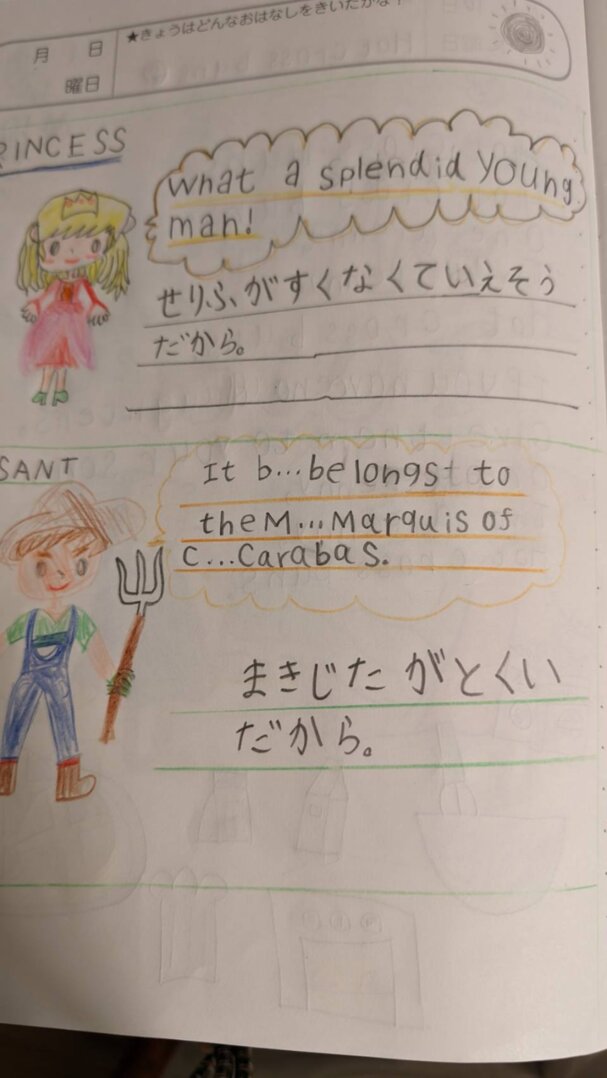 ★きょうはどんなおはなしをきいたかな？
月 日
曜日
RINCESS
What a splendid young
man!
せりふがすくなくていえそう
だから。
SANT
It b...belongst to
the M...Marquis of
C...Carabas.
まきじたがとくい
だから。